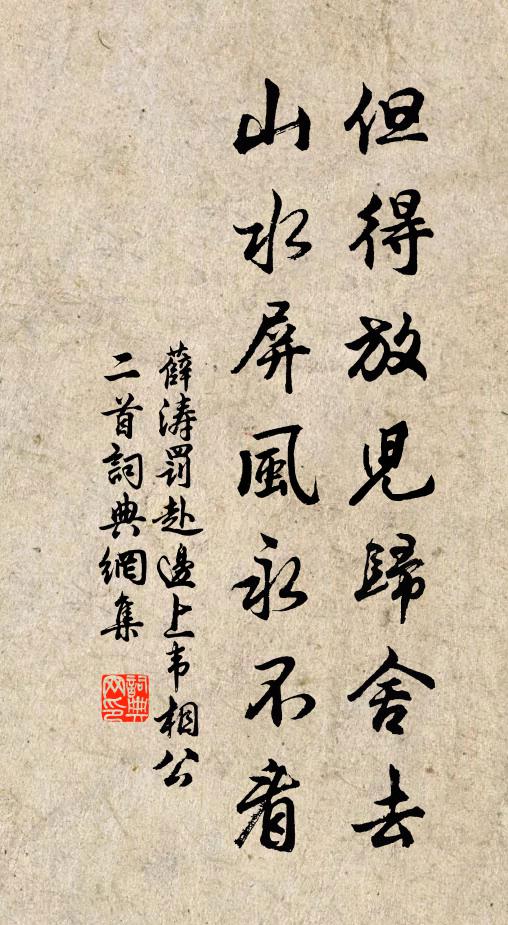 但得放児歸舍去
山水屏風永不看
薛濤罰赴邊上韦相公
二首詞典網集
詞典
网印